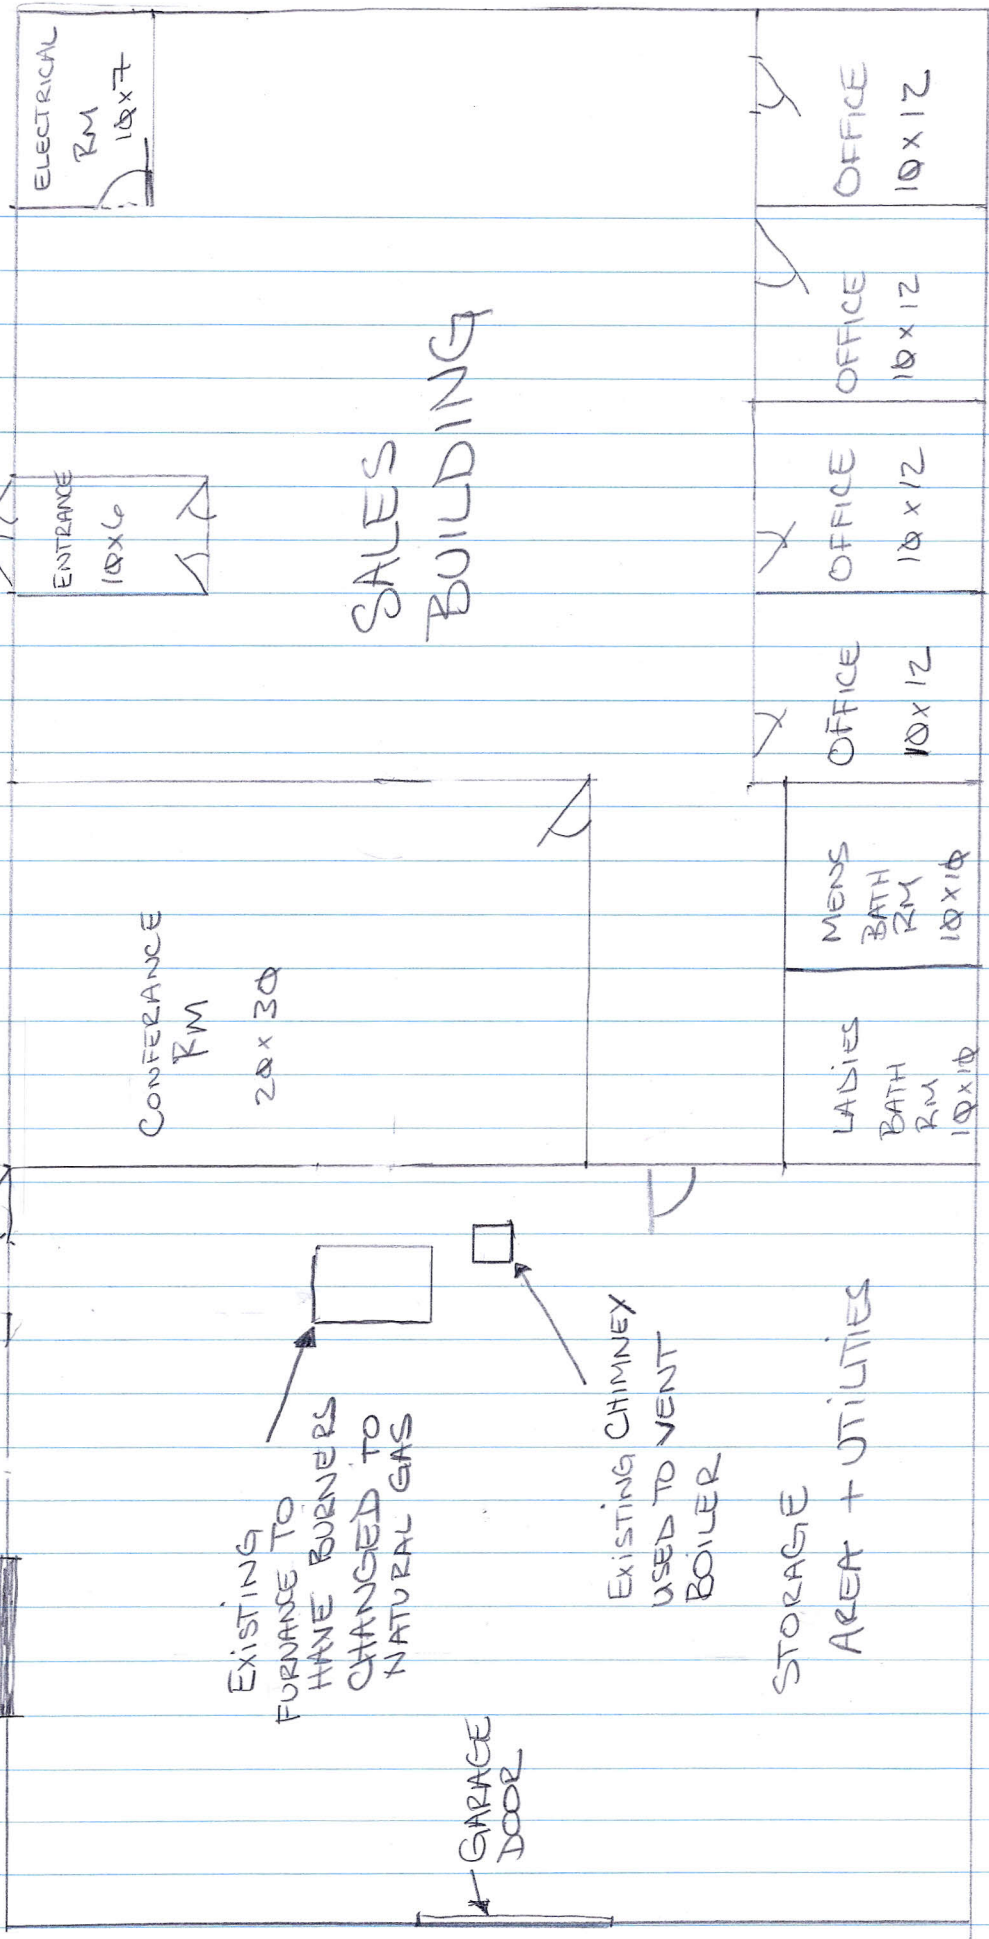 ELECTRICAL
RM
10x7
ENTRANCE
10x6
CONFERANCE
RM
20x30
SALES
BUILDING
OFFICE
10x12
OFFICE
10x12
OFFICE
10x12
OFFICE
10x12
MENS
BATH
RM
10x10
LADIES
BATH
RM
10x10
EXISTING
FURNANCE TO
HAVE BURNERS
CHANGED TO
NATURAL GAS
EXISTING CHIMNEY
USED TO VENT
BOILER
STORAGE
AREA + UTILITIES
GARAGE
DOOR